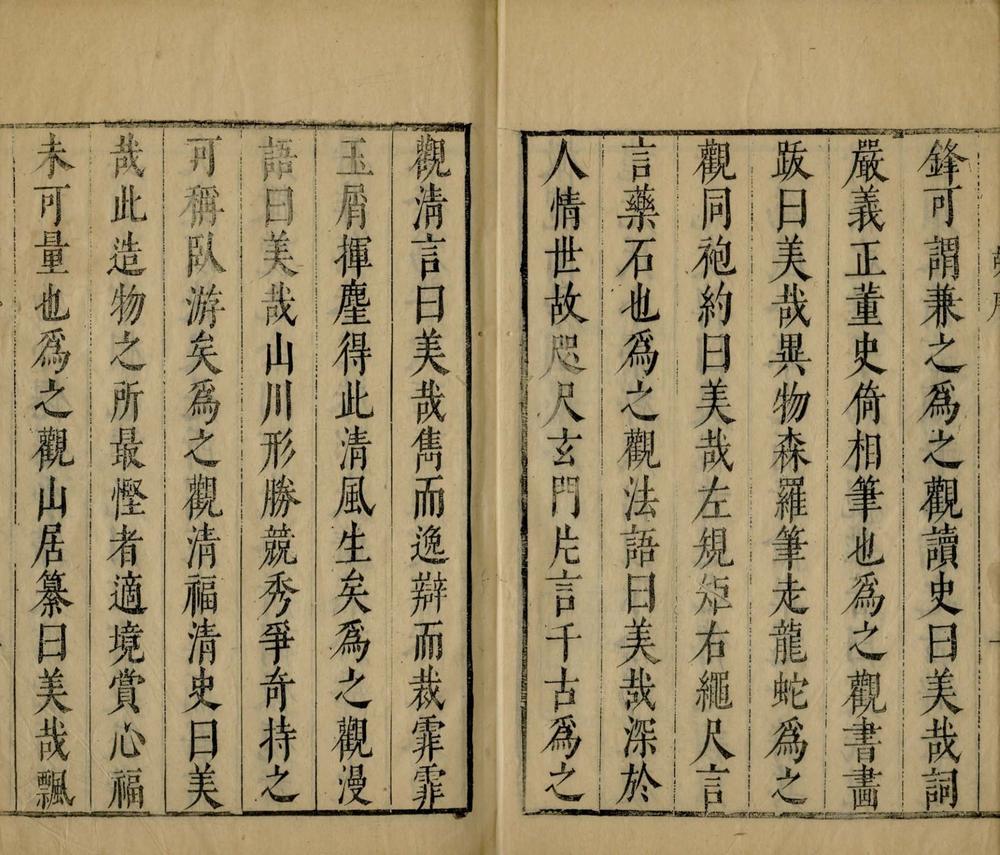 鋒可謂兼之爲之觀讀史曰美哉詞
嚴義正董史倚相筆也爲之觀書畵
跋曰美哉異物森羅筆走龍蛇爲之
觀同袍約曰美哉左規矩右繩尺言
言藥石也爲之觀法語曰美哉深於
人情世故咫尺玄門片言千古爲之
觀清言曰美哉雋而逸辯而裁霏霏
玉屑揮麈得此清風生矣爲之觀漫
語曰美哉山川形勝競秀爭奇持之
可稱臥游矣爲之觀清福清史曰美
哉此造物之所最慳者適境賞心福
未可量也爲之觀山居纂曰美哉飄